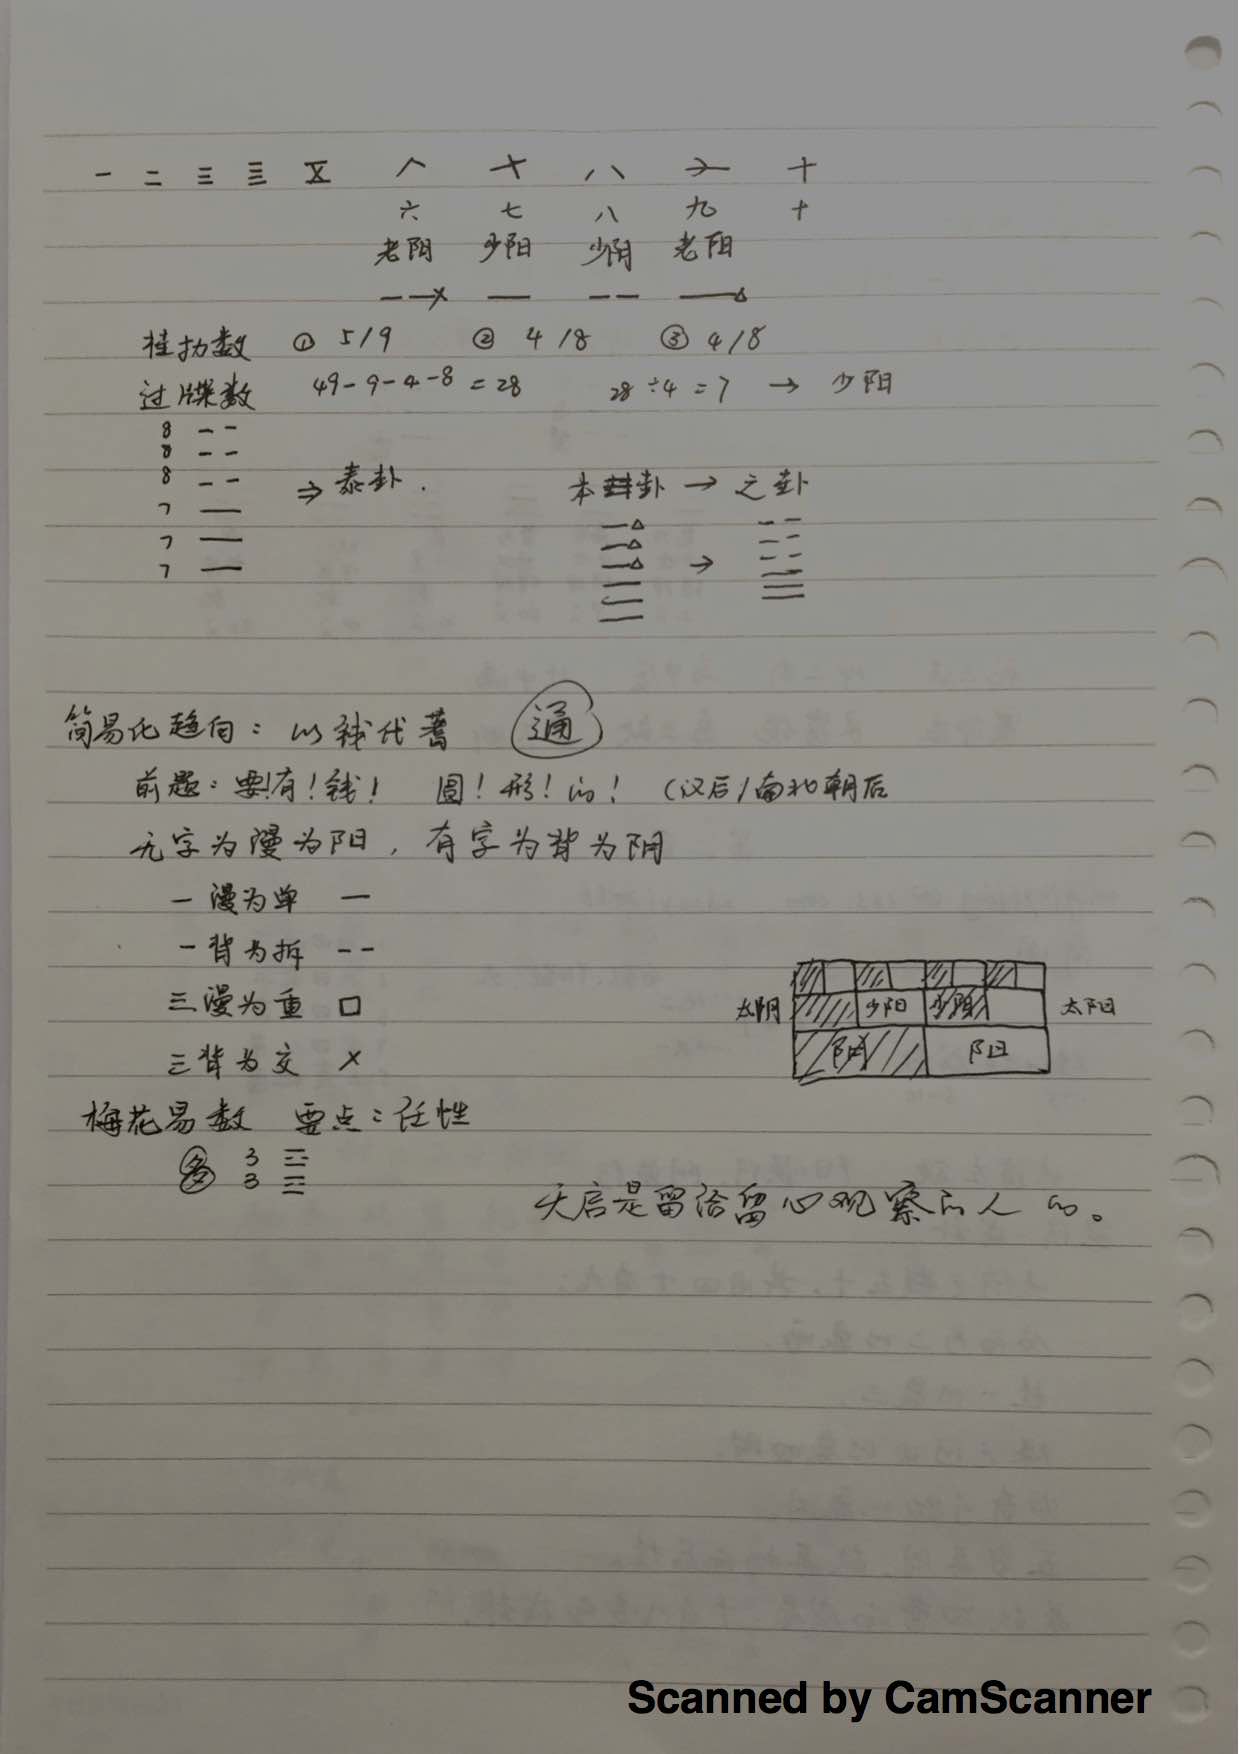 一 二 三 亖 㐅 六 七 八 九 十
六 七 八 九 十
老阴 少阳 少阴 老阳
挂扐数 ① 5/9 ② 4/8 ③ 4/8
过牒数 49-9-4-8=28 28÷4=7 → 少阳
8
8
8 ⇒ 泰卦. 本卦 → 之卦
7
7
7
简易化趋向: 以钱代蓍 通
前题: 要!有!钱! 圆!形!的! (汉后/南北朝后
无字为漫为阳, 有字为背为阴
一漫为单 —
一背为拆 --
三漫为重 □
三背为交 ×
太阴 少阳 少阴 太阳
阴 阳
梅花易数 要点: 任性
3 ☲
3 ☲
天启是留给留心观察的人的。
Scanned by CamScanner